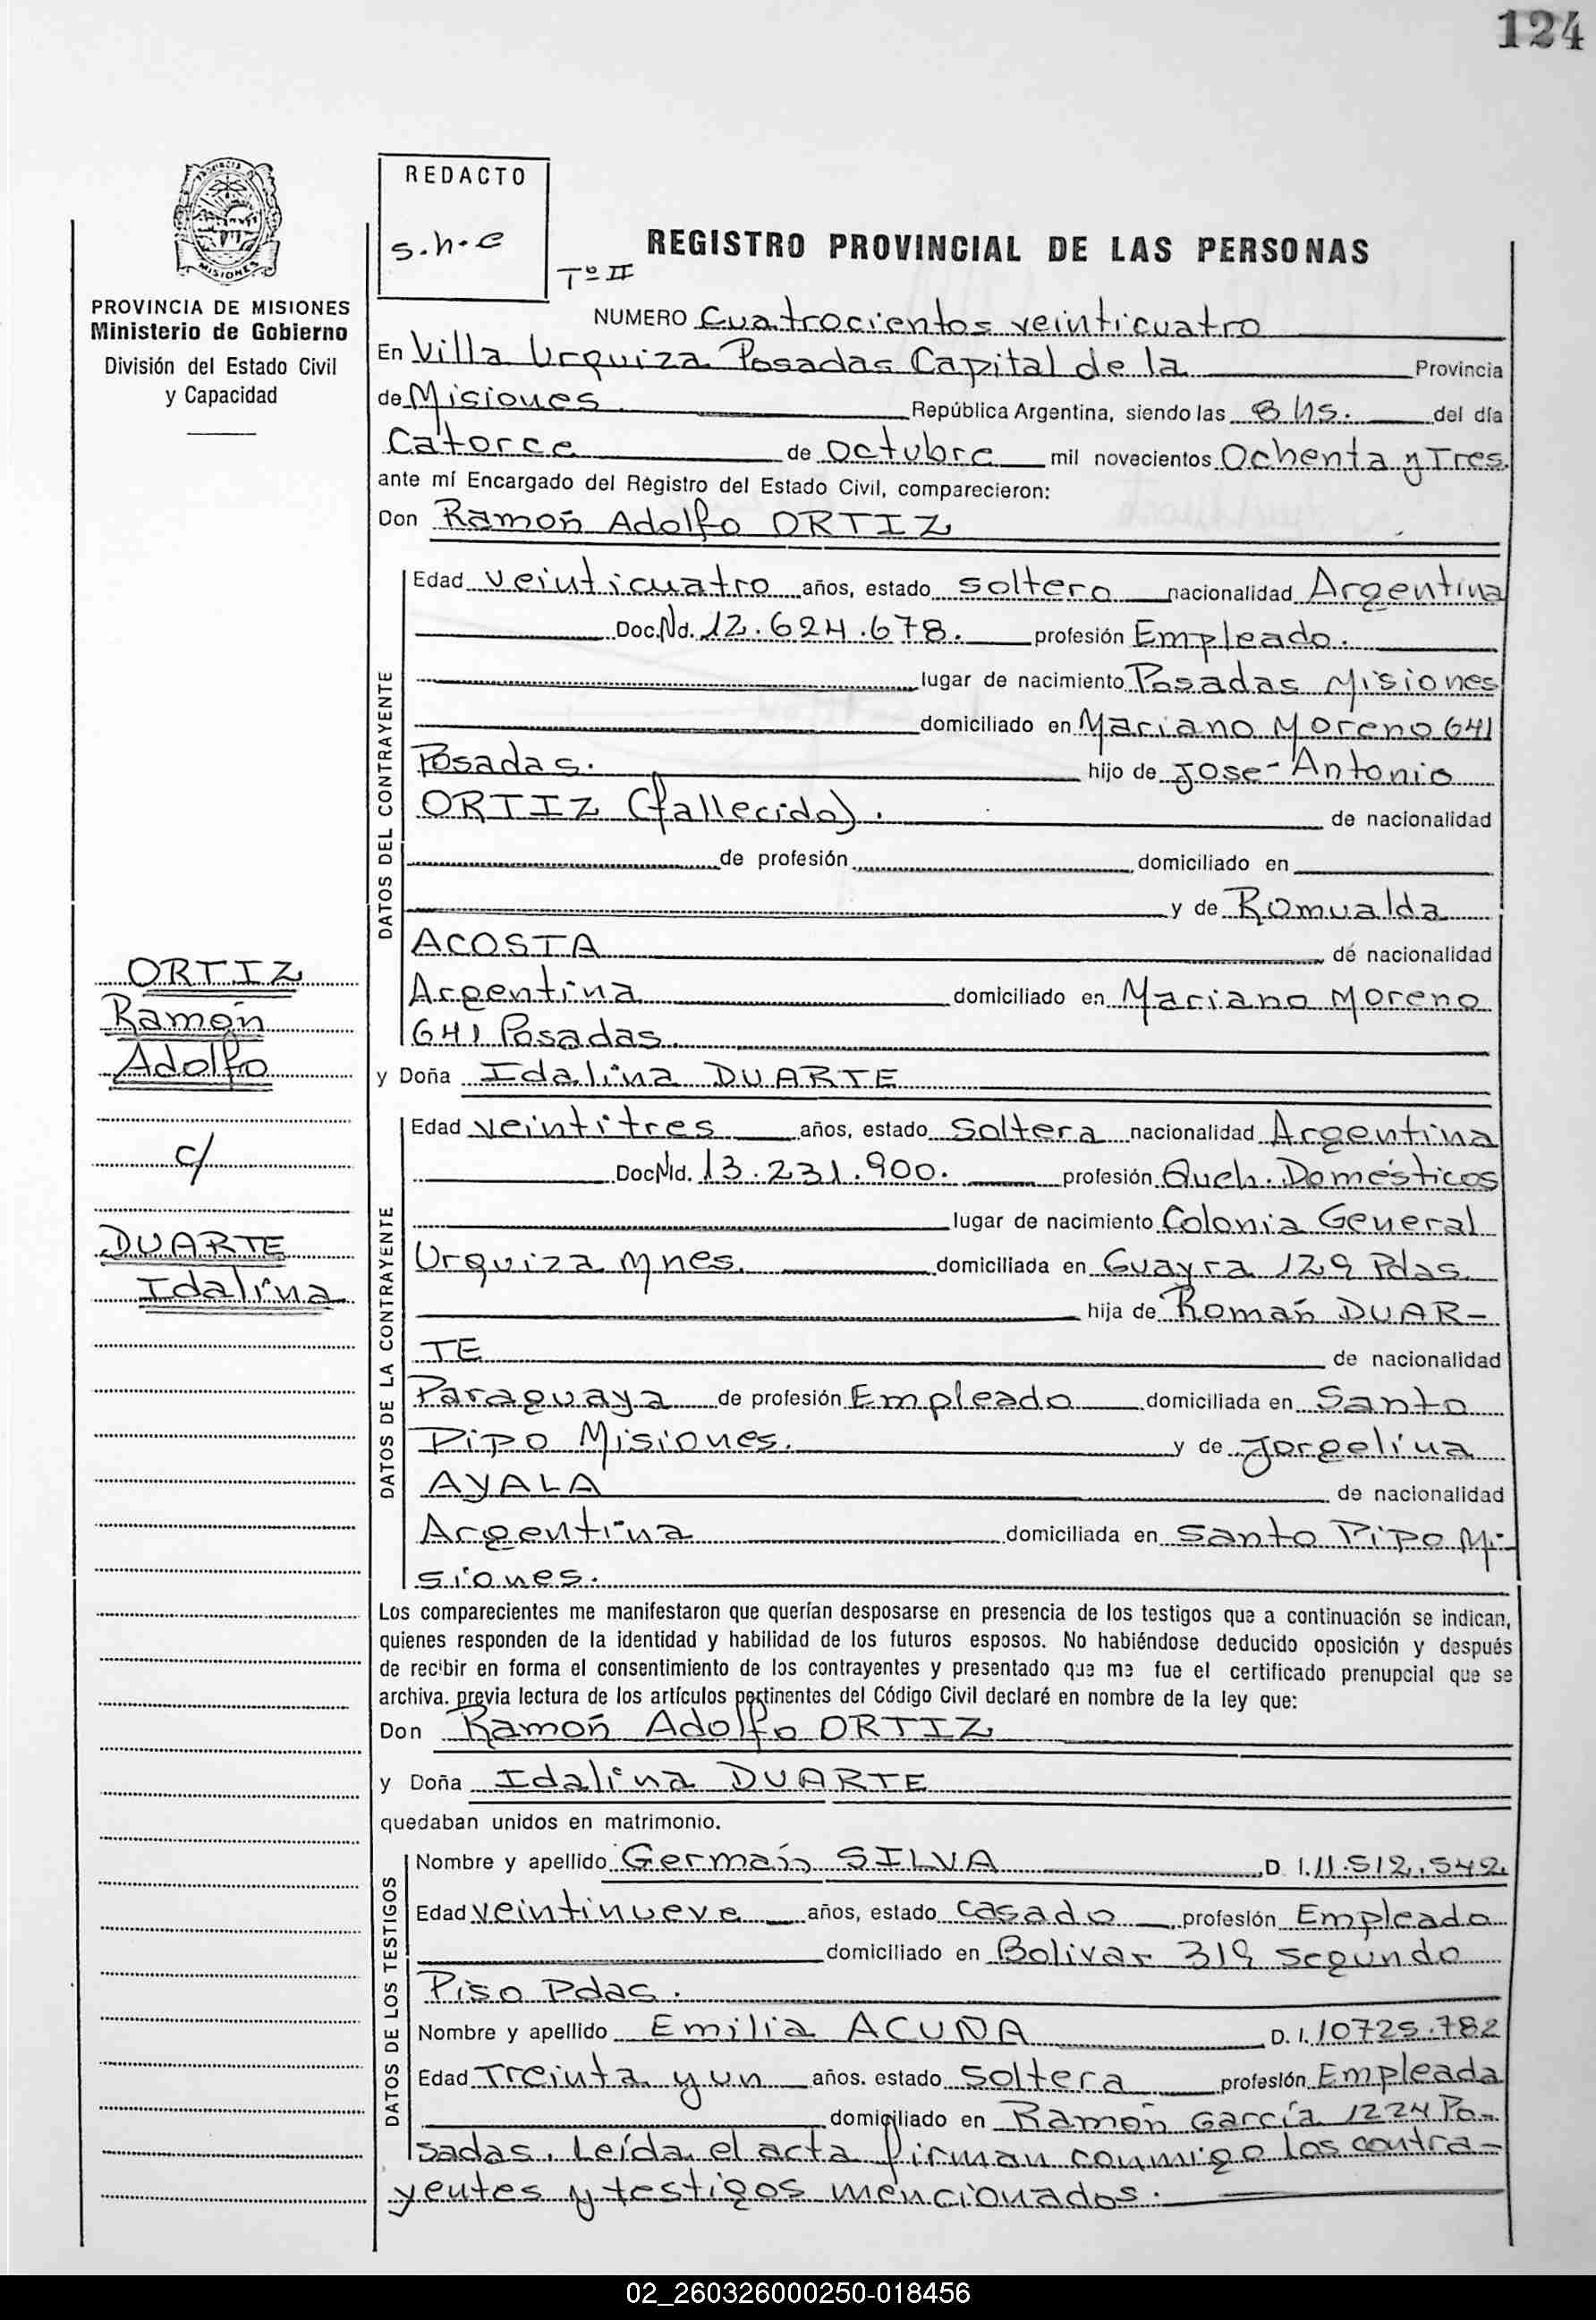 124
REDACTO
s.h.e
Tº II
PROVINCIA DE MISIONES
Ministerio de Gobierno
División del Estado Civil
y Capacidad
REGISTRO PROVINCIAL DE LAS PERSONAS
NUMERO Cuatrocientos veinticuatro
En Villa Urquiza Posadas Capital de la Provincia
de Misiones República Argentina, siendo las 8 hs. del día
Catorce de octubre mil novecientos Ochenta y Tres
ante mí Encargado del Registro del Estado Civil, comparecieron:
Don Ramón Adolfo ORTIZ
DATOS DEL CONTRAYENTE
Edad veinticuatro años, estado soltero nacionalidad Argentina
Doc.Nd. 12.624.678. profesión Empleado.
lugar de nacimiento Posadas Misiones
domiciliado en Mariano Moreno 641
Posadas. hijo de Jose Antonio
ORTIZ (fallecido). de nacionalidad
de profesión domiciliado en
y de Romualda
ACOSTA de nacionalidad
Argentina domiciliado en Mariano Moreno
641 Posadas.
ORTIZ
Ramón
Adolfo
c/
DUARTE
Idalina
y Doña Idalina DUARTE
DATOS DE LA CONTRAYENTE
Edad veintitres años, estado Soltera nacionalidad Argentina
Doc.Nd. 13.231.900. profesión Queh. Domésticos
lugar de nacimiento Colonia General
Urquiza Mnes. domiciliada en Guayra 129 Pdas.
hija de Román DUAR-
TE de nacionalidad
Paraguaya de profesión Empleado domiciliada en Santo
Pipo Misiones. y de Jorgelina
AYALA de nacionalidad
Argentina domiciliada en Santo Pipo Mi-
siones.
Los comparecientes me manifestaron que querían desposarse en presencia de los testigos que a continuación se indican,
quienes responden de la identidad y habilidad de los futuros esposos. No habiéndose deducido oposición y después
de recibir en forma el consentimiento de los contrayentes y presentado que me fue el certificado prenupcial que se
archiva. previa lectura de los artículos pertinentes del Código Civil declaré en nombre de la ley que:
Don Ramón Adolfo ORTIZ
y Doña Idalina DUARTE
quedaban unidos en matrimonio.
DATOS DE LOS TESTIGOS
Nombre y apellido Germaín SILVA D. I. 11.512.542.
Edad veintinueve años, estado casado profesión Empleado
domiciliado en Bolivar 319 segundo
Piso Pdas.
Nombre y apellido Emilia ACUÑA D. I. 10725.782
Edad Treinta y un años. estado soltera profesión Empleada
domiciliado en Ramón García 1224 Po-
sadas. Leída el acta firman conmigo los contra-
yentes y testigos mencionados.
02_260326000250-018456